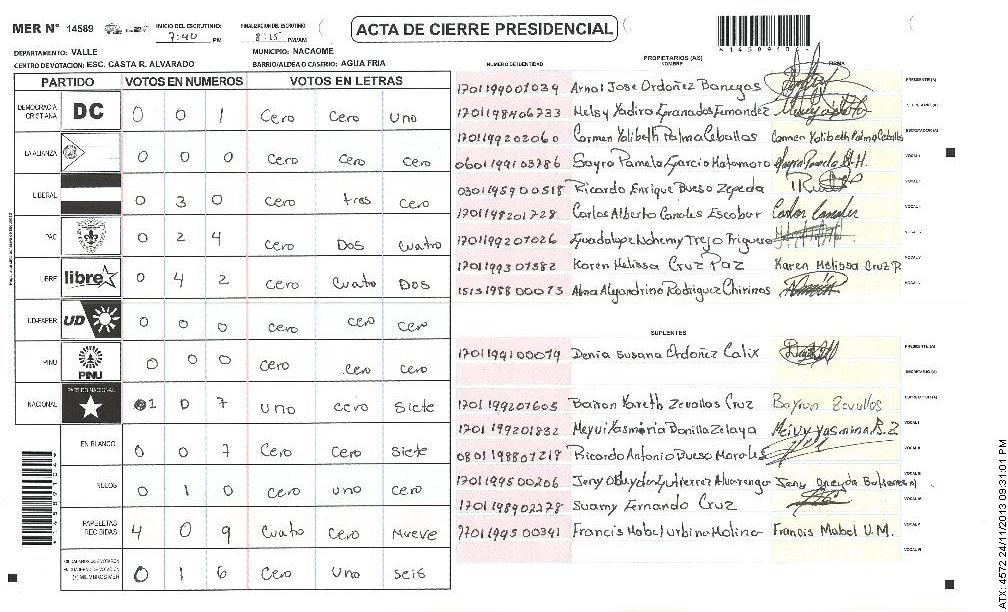 MER Nº 14589
INICIO DEL ESCRUTINIO: 7:40 PM
FINALIZACION DEL ESCRUTINIO: 8:15 PM/AM
ACTA DE CIERRE PRESIDENCIAL
DEPARTAMENTO: VALLE
MUNICIPIO: NACAOME
CENTRO DE VOTACION: ESC. CASTA R. ALVARADO
BARRIO/ALDEA O CASERIO: AGUA FRIA
PARTIDO VOTOS EN NUMEROS VOTOS EN LETRAS
DEMOCRACIA CRISTIANA DC 0 0 1 Cero Cero Uno
LA ALIANZA 0 0 0 Cero Cero Cero
LIBERAL 0 3 0 Cero tres Cero
PAC 0 2 4 Cero Dos Cuatro
LIBRE libre 0 4 2 Cero Cuatro Dos
UD-FAPER UD 0 0 0 Cero Cero Cero
PINU PINU 0 0 0 Cero Cero Cero
NACIONAL PARTIDO NACIONAL 1 0 7 uno cero Siete
EN BLANCO 0 0 7 Cero Cero Siete
NULOS 0 1 0 Cero uno Cero
PAPELETAS RECIBIDAS 4 0 9 Cuatro Cero Nueve
(+) MIEMBROS MER 0 1 6 Cero Uno seis
NUMERO DE IDENTIDAD
PROPIETARIOS (AS)
NOMBRE
FIRMA
1701199001034 Arnol Jose Ordoñez Banegas PRESIDENTE (A)
1701198406733 Nelsy Yadira Granados Fernandez
1701199202060 Carmen Yolibeth Palma Ceballos Carmen Yolibeth Palma Ceballos
0601199103786 Sayra Pamela Garcia Matamoro
0301195900518 Ricardo Enrique Bueso Zepeda
1701198201728 Carlos Alberto Canales Escobar Carlos Canales
1701199207026 Guadalupe Nohemy Trejo Friguero
1701199301382 Karen Melissa Cruz Paz Karen Melissa Cruz P.
1515198800073 Alma Alejandrina Rodriguez Chirinos
SUPLENTES
1701199100079 Denia Susana Ordoñez Calix PRESIDENTE (A)
SECRETARIO (A)
1701199207605 Bairon Yareth Zevallos Cruz Bayron Zevallos
1701199201832 Meyvi Yasmiria Bonilla Zelaya
0801198807219 Ricardo Antonio Bueso Morales
1701199500206
1701198902278 Suamy Fernando Cruz
1701199500391 Francis Mabel Urbina Molina Francis Mabel U.M.
ATX: 4572 24/11/2013 09:31:01 PM